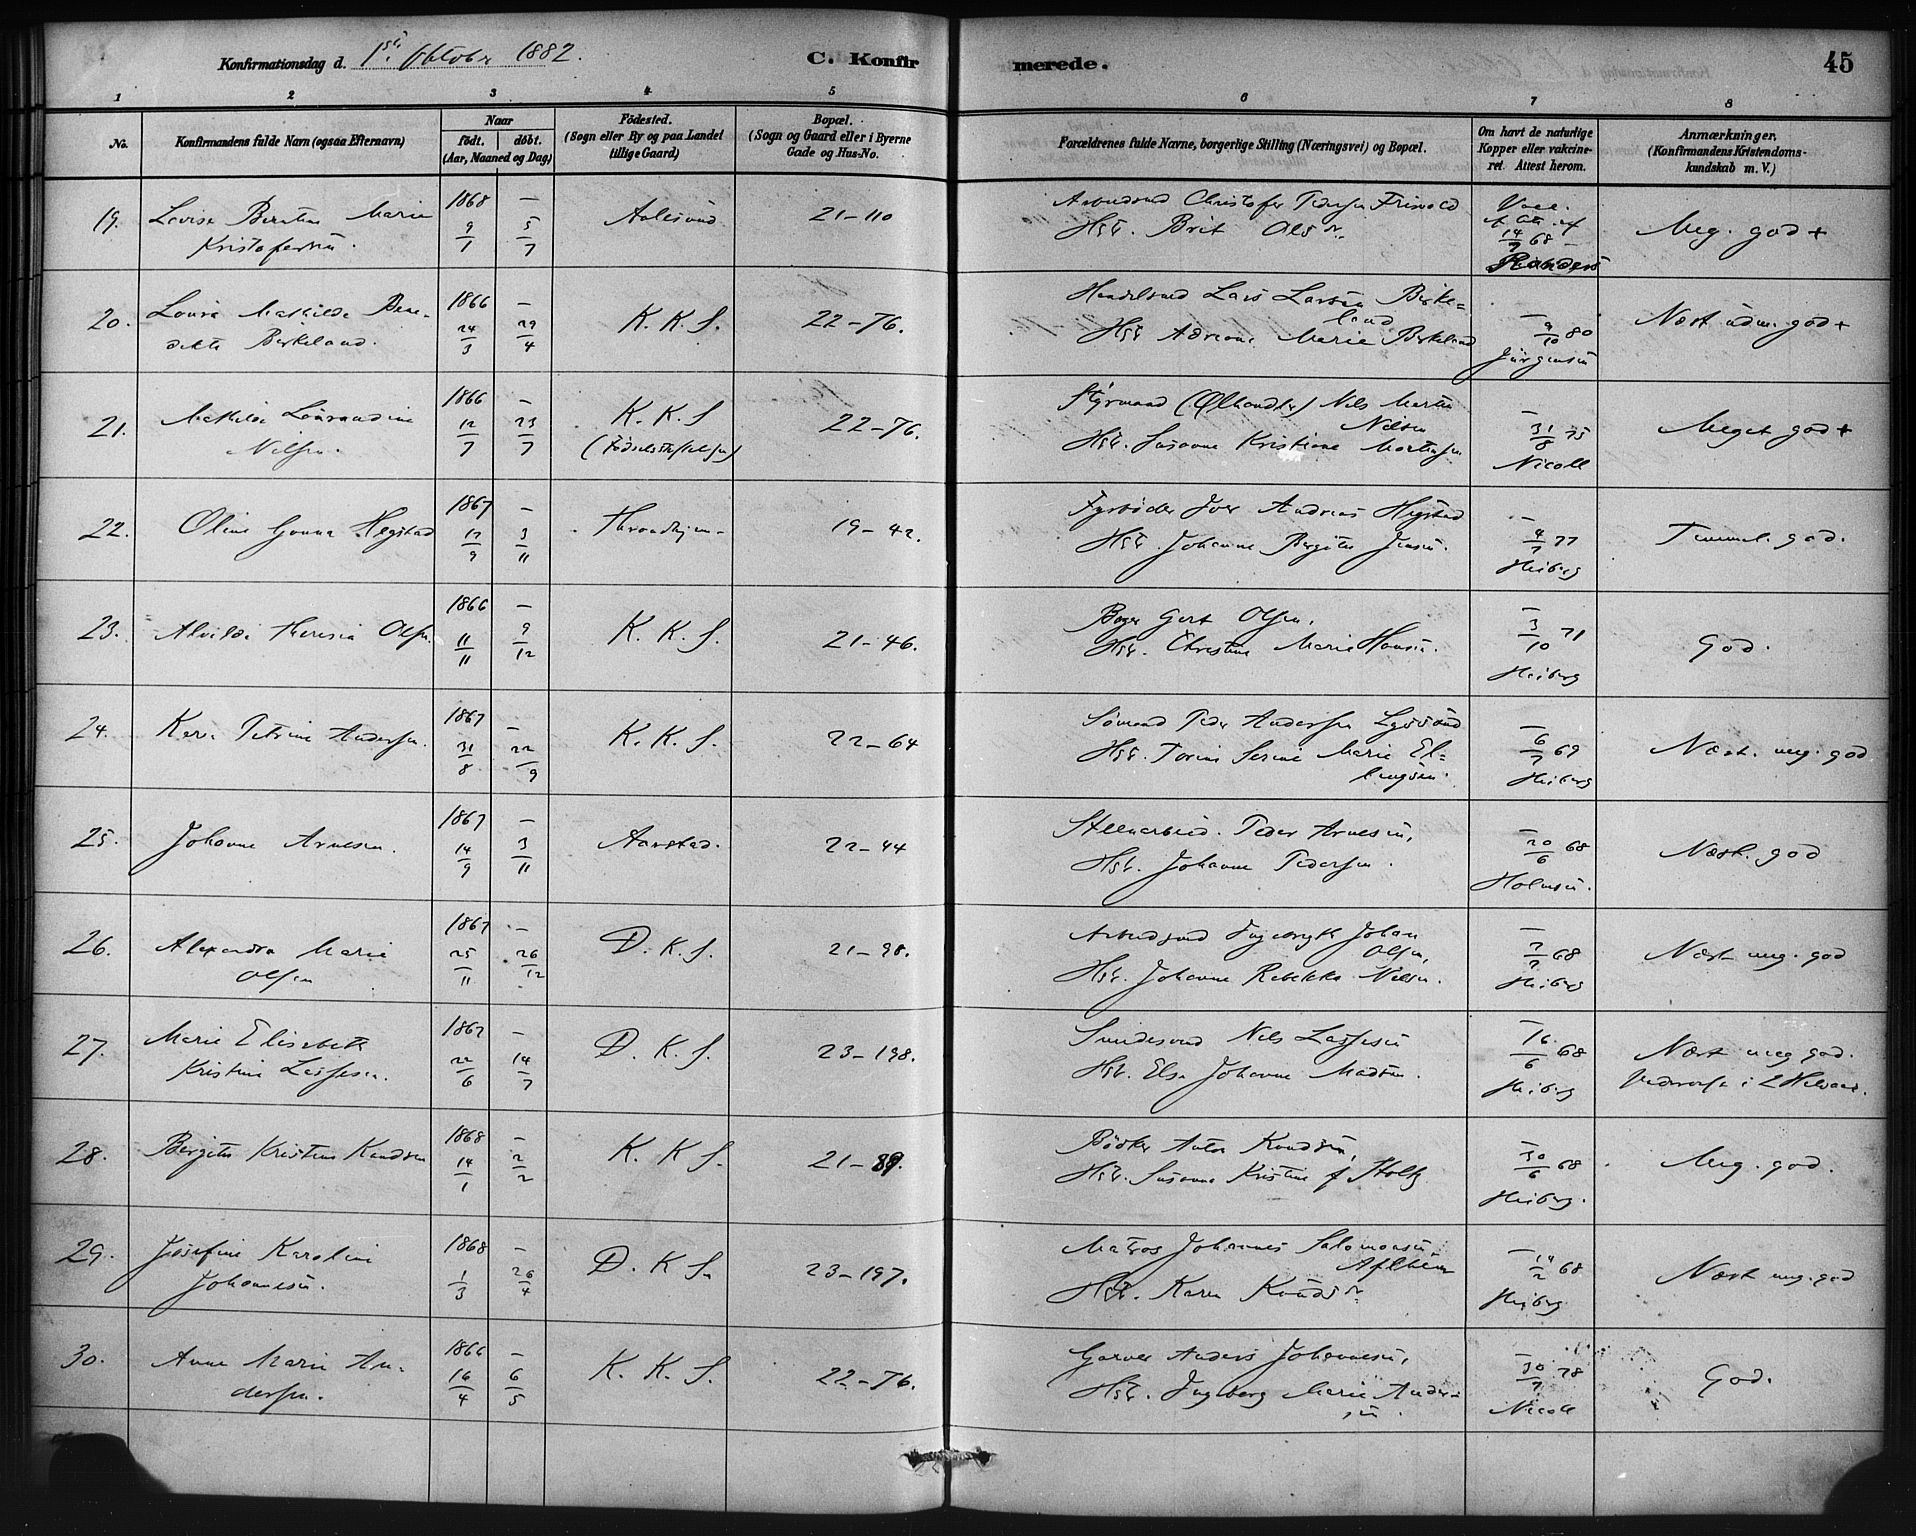 Konfirmationsdag d. 1ste Oktobr 1882.
C. Konfirmerede.
45
1 2 3 4 5 6 7 8
No.
Konfirmandens fulde Navn (ogsaa Efternavn)
Naar
født. døbt.
(Aar, Maaned og Dag)
Fødested.
(Sogn eller By og paa Landet
tillige Gaard)
Bopæl.
(Sogn og Gaard eller i Byerne
Gade og Hus-No.
Forældrenes fulde Navne, borgerlige Stilling (Næringsvei) og Bopæl.
Om havt de naturlige
Kopper eller vakcine-
ret. Attest herom.
Anmærkninger.
(Konfirmandens Kristendoms-
kundskab m. V.)
19. Lovise Marie
Kristofersen.
1868 9/1
– 5/7
Aalesund
21-110
Arbeidsmd Christofer Pedersen
Hst. Brit Olsdr.
Vacc.
14/7 68 –
Meg. god +
20. Laura Mathilde Bene-
dikte Birkeland.
1866 24/3
– 29/4
K. K. S.
22-76.
Handelsmd Lars Larsen Birke-
land
Hst Adriane Marie Birkeland
– 9/10 80
Jürgensen
Næst udm. god +
21. Mathilde Laurandine
Nilsen.
1866 12/7
– 23/7
K. K. S
(Fødselsstiftelsen)
22-76.
Styrmand (Ølhandler) Nils Martin
Nilsen
Hst. Susanne Kristiane Mortensen
– 31/8 75
Nicoll
Meget god +
22. Oline Gunna Hegstad
1867 17/9
– 3/11
Throndhjem
19-42.
Fyrbøder Iver Andreas Hegstad
Hst. Johanne Bergitte Jensen.
– 4/7 77
Heiberg
Temmel. god.
23. Alvilde Theresia Olsen.
1866 11/11
– 9/12
K. K. S.
21-46.
Bager Gert Olsen.
Hst. Christine Marie Hansen.
– 3/10 71
Heiberg
God.
24. Karen Petrine Andersen.
1867 31/8
– 22/9
K. K. S.
22-64
Sømand Peder Andersen
Hst. Serine Marie El-
lingsen.
– 6/7 69
Heiberg
Næst. meg. god
25. Johanne Arnesen.
1867 14/9
– 3/11
Aarstad.
22-44
Stenarbeid. Peder Arnesen,
Hst. Johanne Pedersen.
– 20/6 68
Holmsen.
Næst. god
26. Alexandra Marie
Olsen
1867 25/11
– 26/12
D. K. S.
21-98.
Arbeidsmd Ingebrigt Johan
Olsen,
Hst. Johanne Rebekka Nilsen.
– 7/7 68
Heiberg
Næst meg. god
27. Marie Elisabeth
Kristine Lassesen.
1867 22/6
– 14/7
D. K. S.
23-198.
Smedesvend Nils Lassesen
Hst. Else Johanne Madsen.
– 16/6 68
Heiberg
Næst meg god.
28. Bergitte Kristine Knudsen
1868 14/1
– 2/2
K. K S.
21-89.
Bødker Anton Knudsen,
Hst. Susanne Kristine f Holtz
– 30/6 68
Heiberg.
Meg. god.
29. Josefine Karoline
Johannesen.
1868 1/3
– 26/4
D. K S.
23-197.
Matros Johannes Salomonsen
Hst. Karen Knudsdr.
– 14/2 68
Heiberg
Næst meg. god
30. Anne Marie An-
dersen.
1866 16/4
– 6/5
K. K. S.
22-76.
Garver Anders Johannesen,
Hst. Ingeborg Marie Ander-
sen.
– 30/7 78
Nicoll
God.